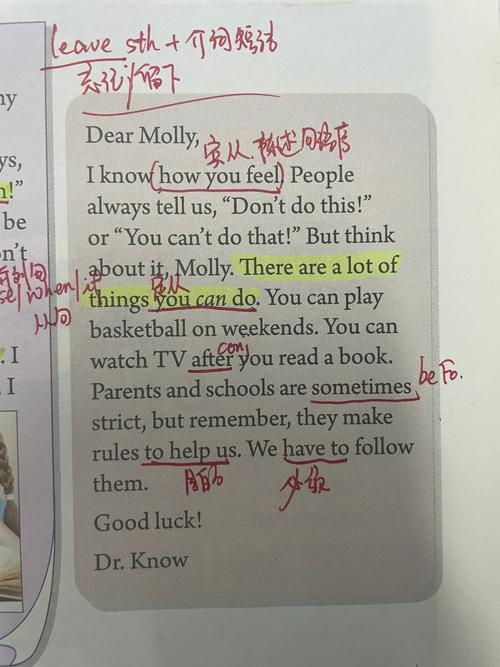 leave sth + 介词短语
忘记/留下
Dear Molly,
宾从. 陈述句语序
I know how you feel! People
always tell us, “Don’t do this!”
or “You can’t do that!” But think
about it, Molly. There are a lot of
定从
things you can do. You can play
basketball on weekends. You can
conj
watch TV after you read a book.
Parents and schools are sometimes
be后.
strict, but remember, they make
rules to help us. We have to follow
目的 必须
them.
Good luck!
Dr. Know
ny
ys,
n!”
be
n’t
when/if
从句
. I
I